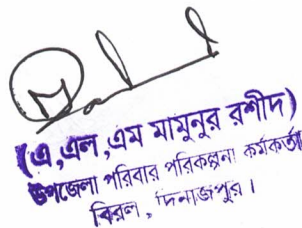 (এ,এল,এম মামুনুর রশীদ)
উপজেলা পরিবার পরিকল্পনা কর্মকর্তা
বিরল, দিনাজপুর।